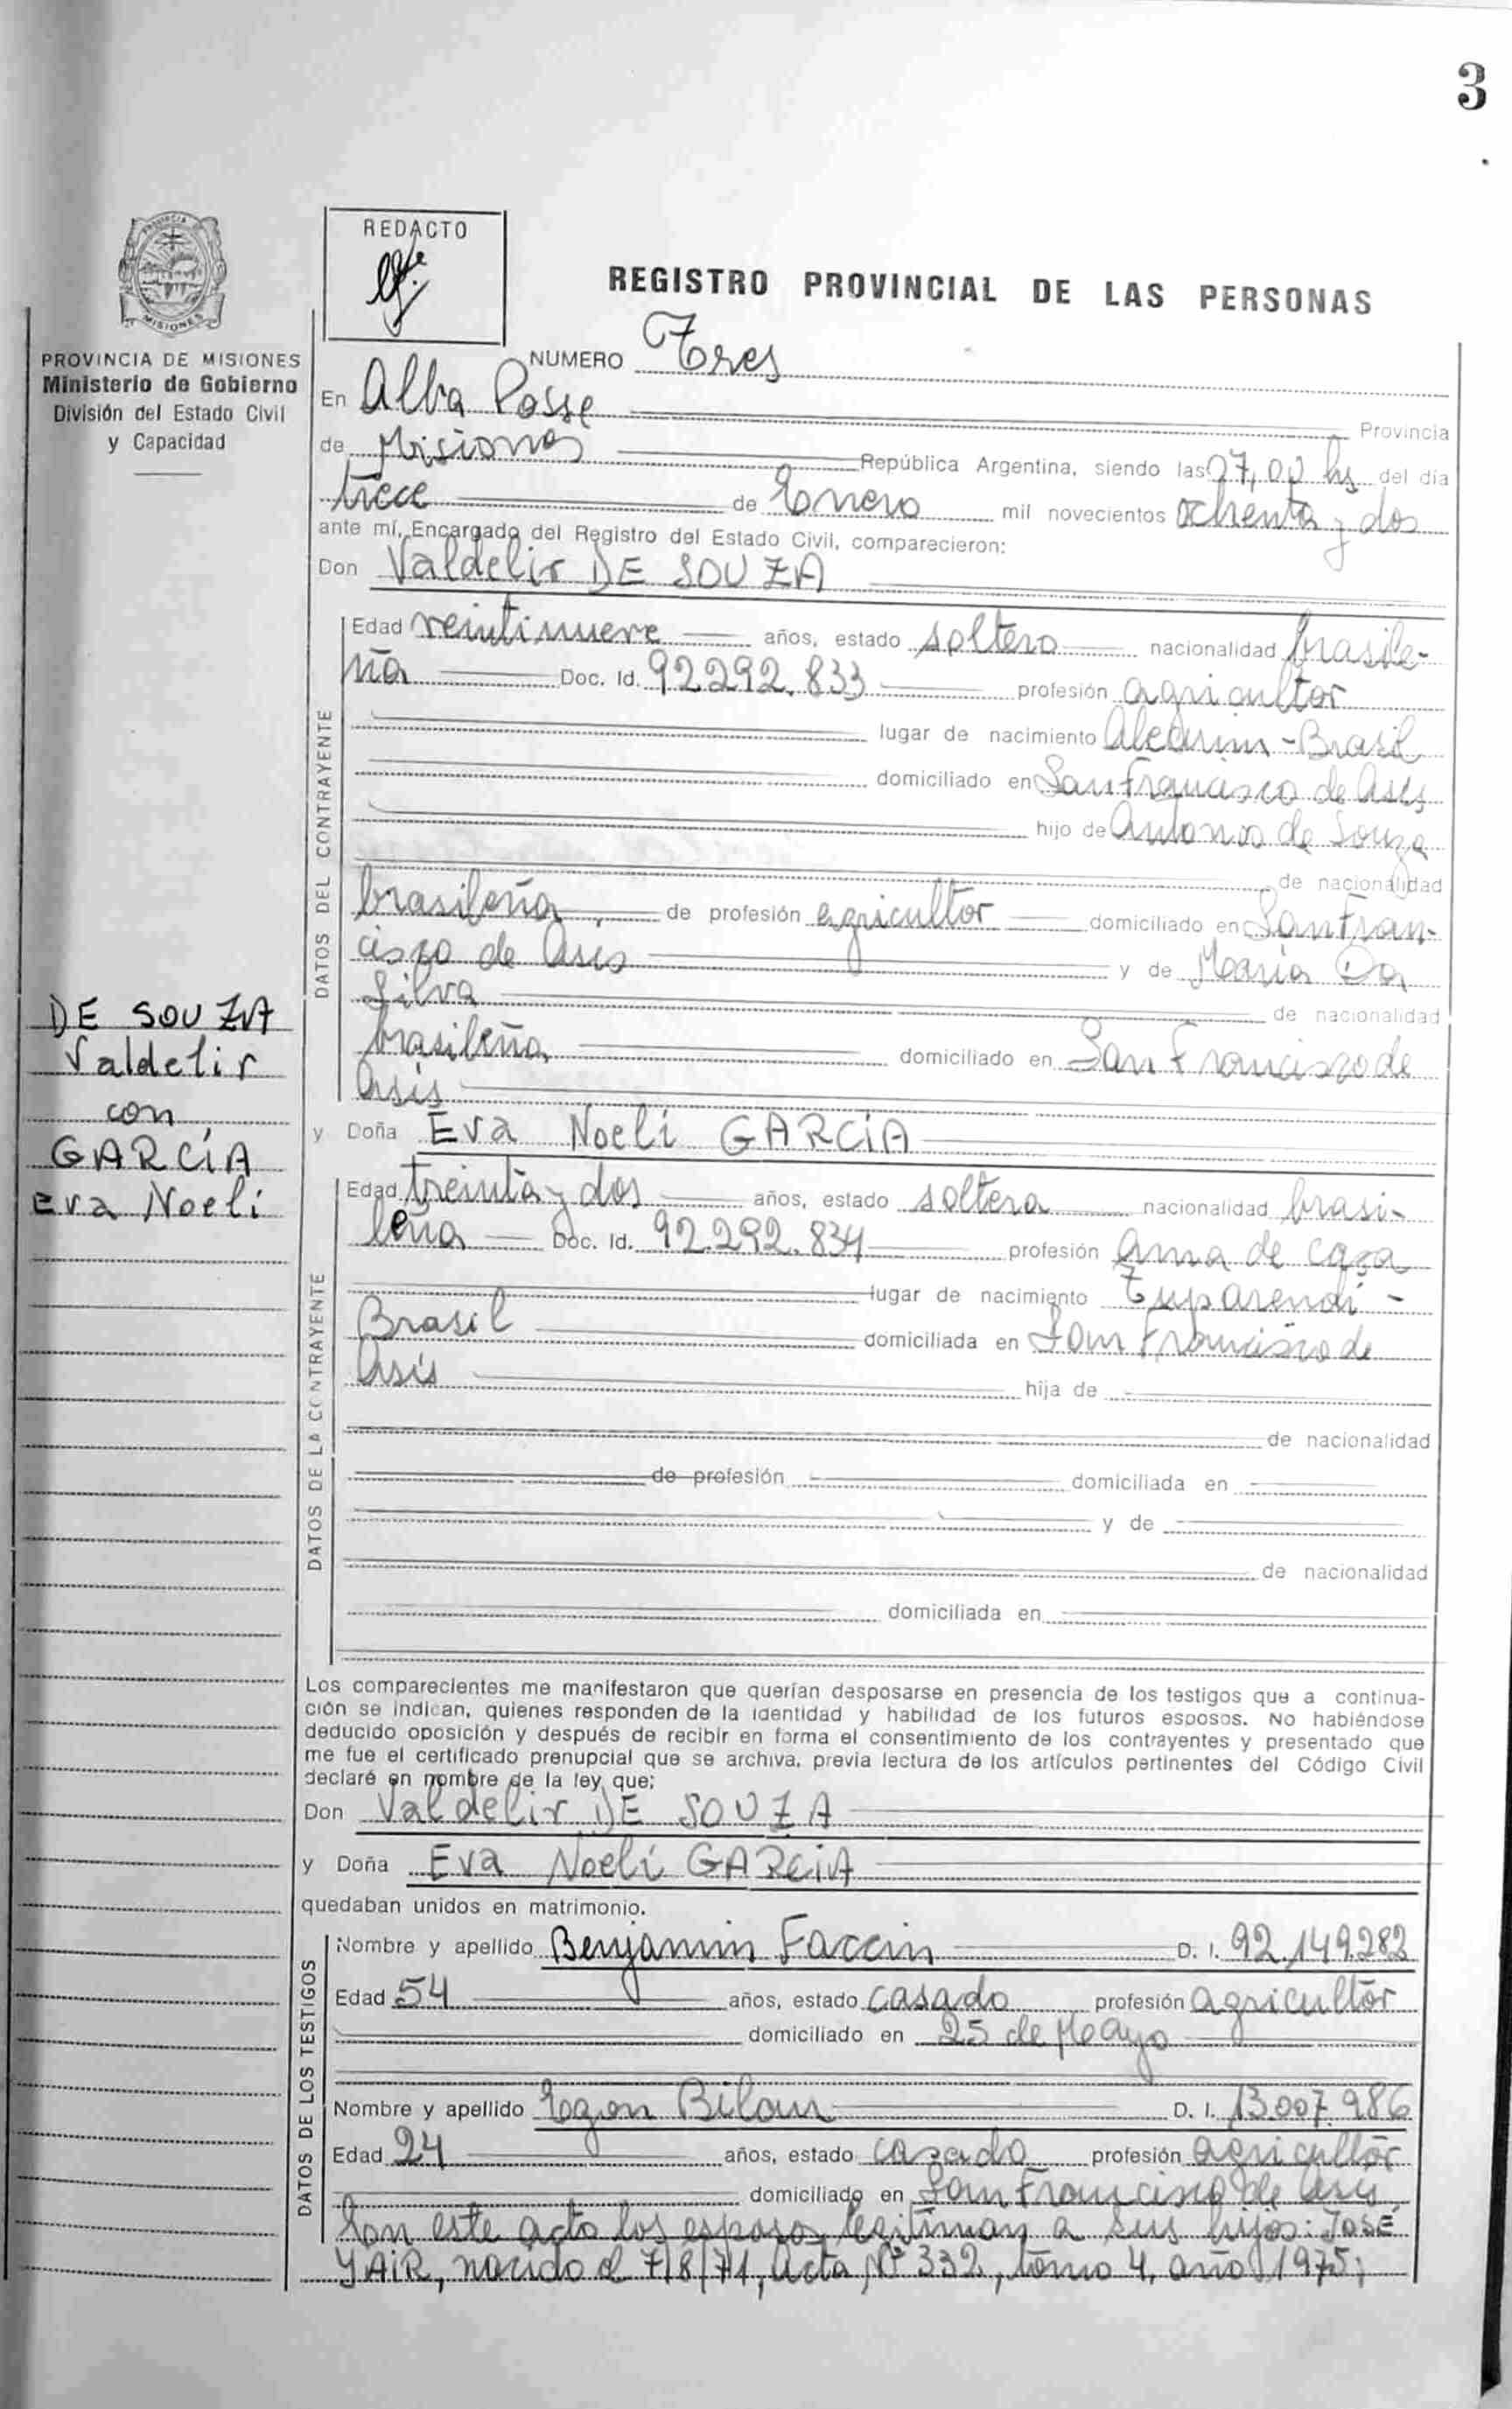 3
PROVINCIA
MISIONES
PROVINCIA DE MISIONES
Ministerio de Gobierno
División del Estado Civil
y Capacidad
REDACTO
REGISTRO PROVINCIAL DE LAS PERSONAS
NUMERO Tres
En Alba Posse Provincia
de Misiones República Argentina, siendo las 07,00 hs del día
trece de Enero mil novecientos ochenta y dos
ante mí, Encargado del Registro del Estado Civil, comparecieron:
Don Valdelir DE SOUZA
DATOS DEL CONTRAYENTE
Edad veintinueve años, estado soltero nacionalidad brasile-
ña Doc. Id. 92.292.833 profesión agricultor
lugar de nacimiento Alecrim - Brasil
domiciliado en San Francisco de Asis
hijo de Antonio de Souza
de nacionalidad
brasileña, de profesión agricultor domiciliado en San Fran-
cisco de Asis y de María Da
Silva de nacionalidad
brasileña domiciliado en San Francisco de
Asis
DE SOUZA
Valdelir
con
GARCÍA
Eva Noelí
y Doña Eva Noelí GARCÍA
DATOS DE LA CONTRAYENTE
Edad treinta y dos años, estado soltera nacionalidad brasi-
leña Doc. Id. 92.292.834 profesión ama de casa
lugar de nacimiento Tuparendí -
Brasil domiciliada en San Francisco de
Asís hija de
de nacionalidad
de profesión domiciliada en
y de
de nacionalidad
domiciliada en
Los comparecientes me manifestaron que querían desposarse en presencia de los testigos que a continua-
ción se indican, quienes responden de la identidad y habilidad de los futuros esposos. No habiéndose
deducido oposición y después de recibir en forma el consentimiento de los contrayentes y presentado que
me fue el certificado prenupcial que se archiva, previa lectura de los artículos pertinentes del Código Civil
declaré en nombre de la ley que:
Don Valdelir DE SOUZA
y Doña Eva Noelí GARCIA
quedaban unidos en matrimonio.
DATOS DE LOS TESTIGOS
Nombre y apellido Benjamin Faccin D. I. 92.149.282
Edad 54 años, estado casado profesión agricultor
domiciliado en 25 de Mayo
Nombre y apellido Egon Bilan D. I. 13.007.986
Edad 24 años, estado casado profesión agricultor
domiciliado en San Francisco de Asis
Con este acto los esposos legitiman a sus hijos: JOSÉ
YAIR, nacido el 7/8/71, Acta Nº 332, tomo 4, año 1975;